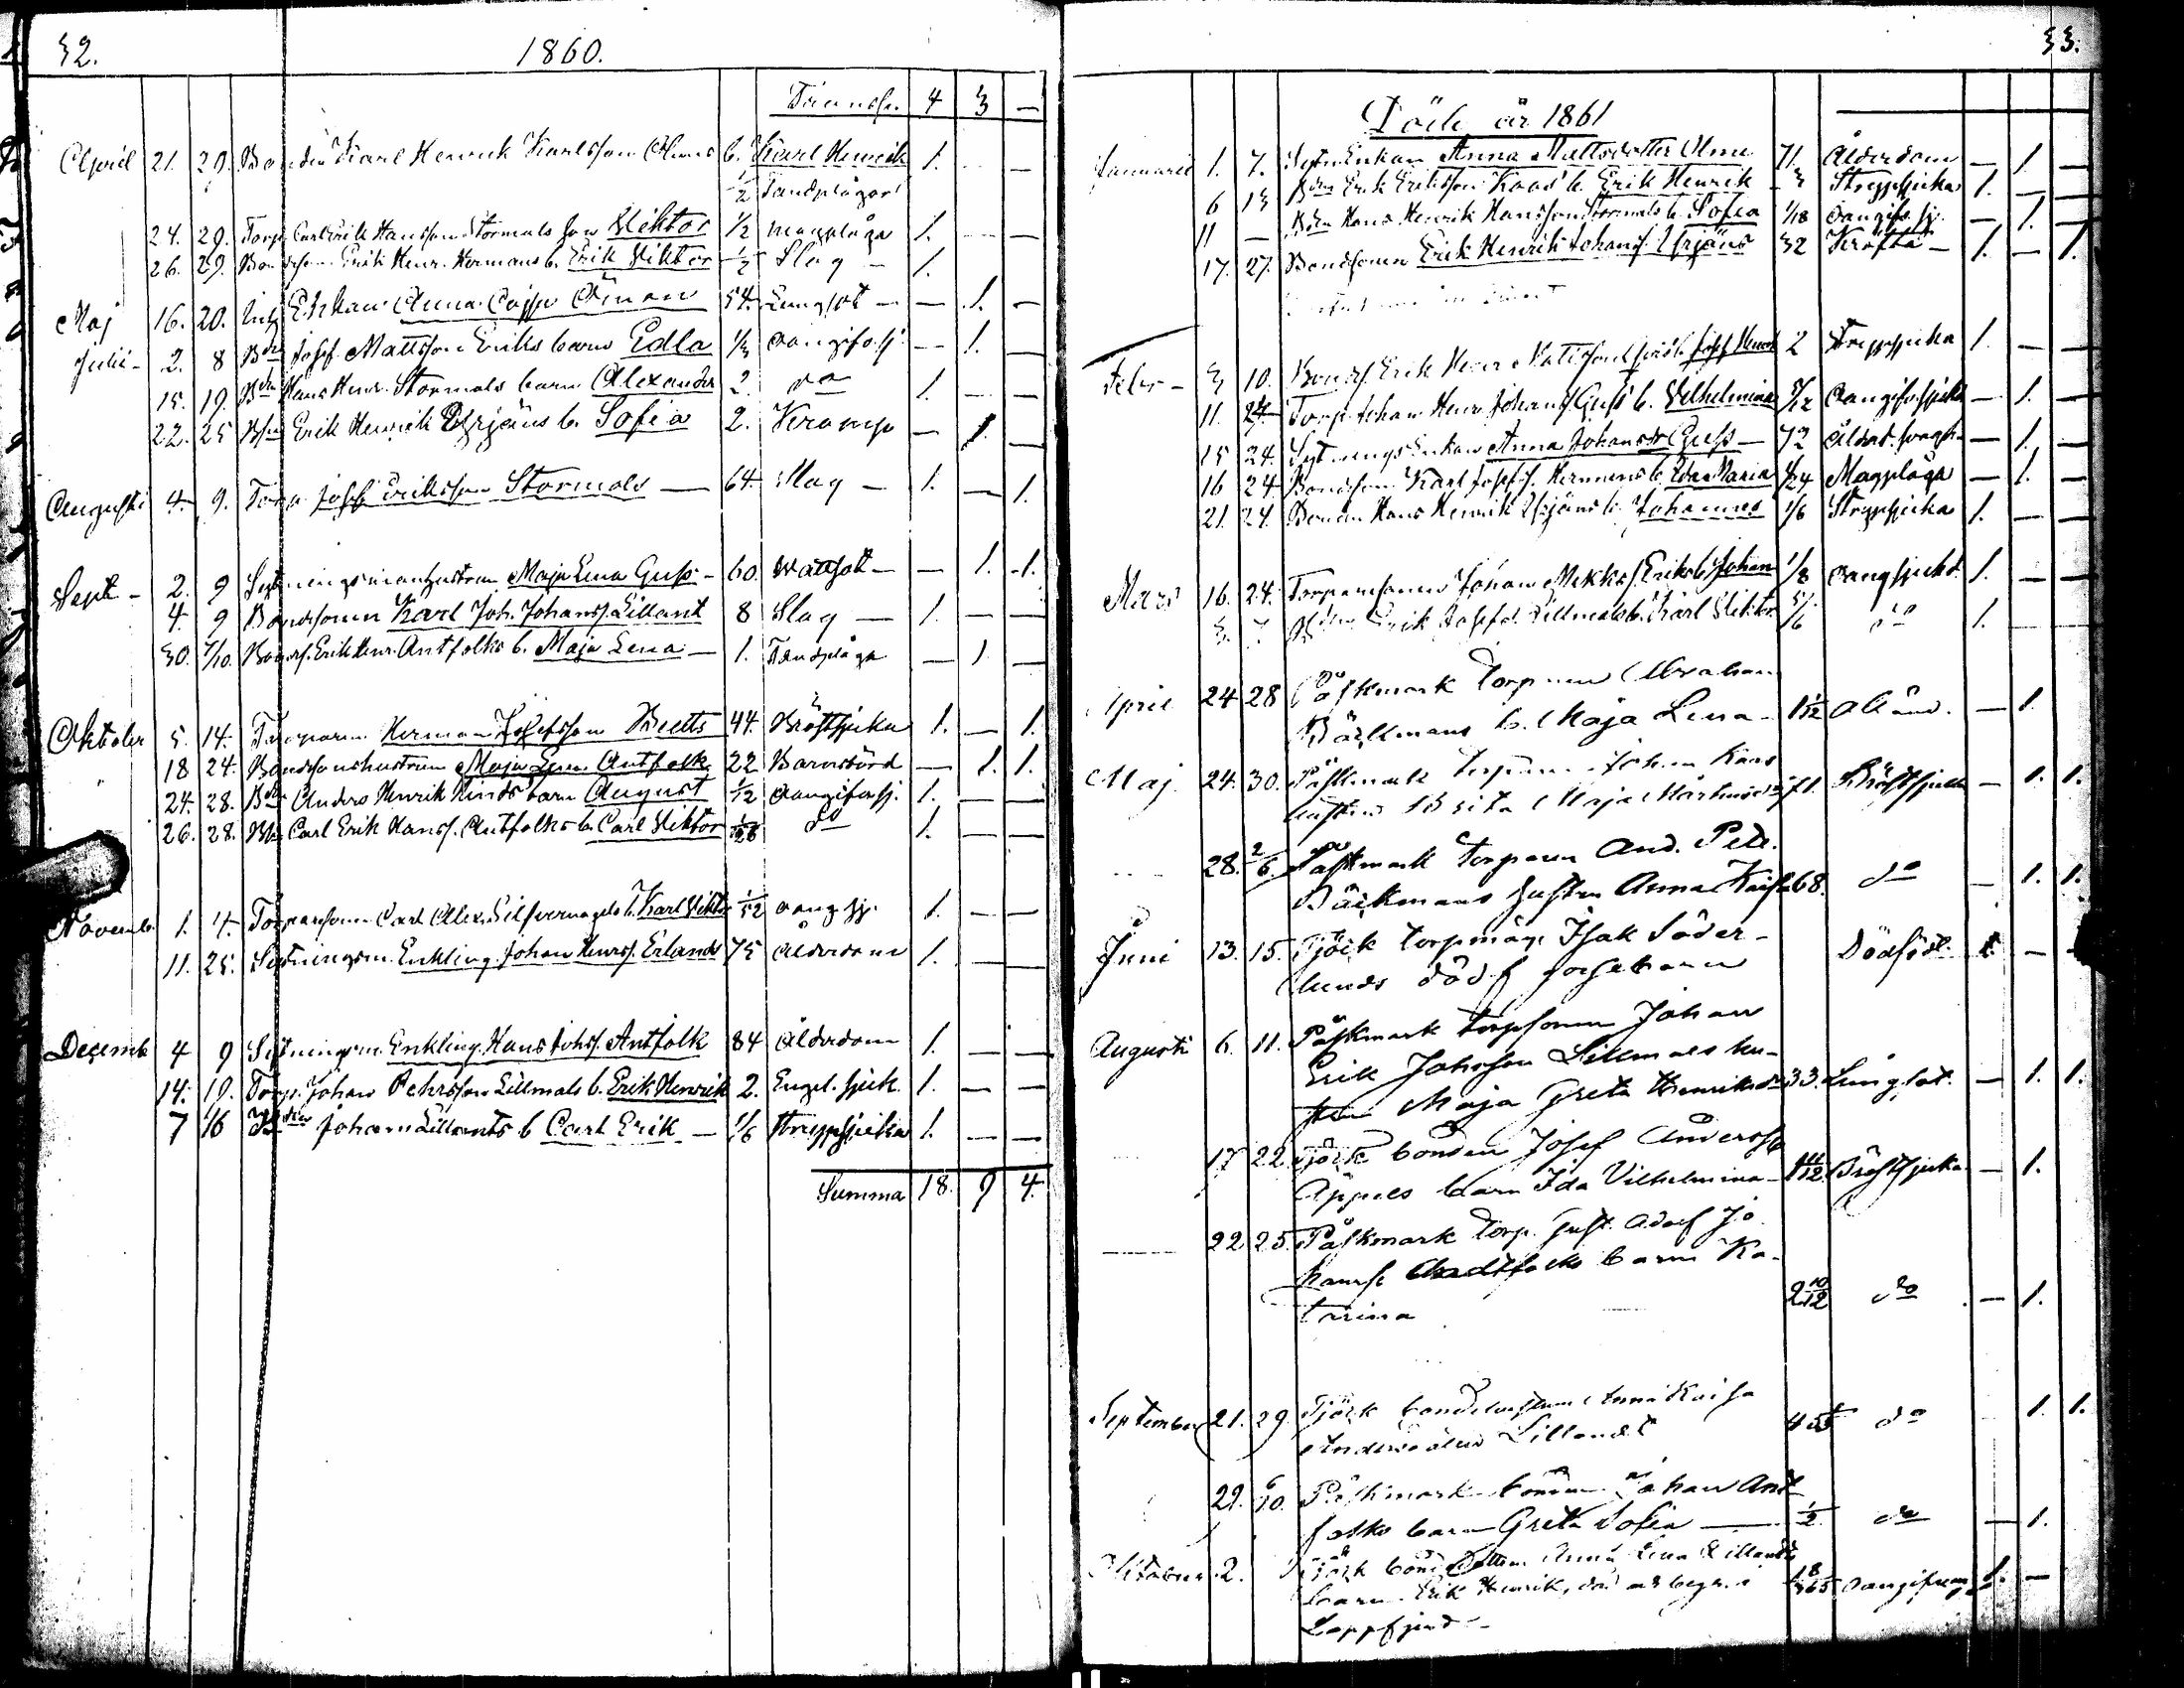 32. 1860.
Transp. 4 3 —
April 21. 29. Bonden Karl Henrik Karlsson Olims b. Karl Henrik 1. — —
1/2 Tandplågor
24. 29. Torp. Carl Erik Hansson Stormals son Viktor 1/2 magplåga 1. — —
26. 29. Bondsonen Erik Henr. Hermans b. Erik Viktor 1/2 Slag — 1.
Maj 16. 20. Enkan Anna Cajsa Öman 54. Lungsot — — 1. —
Julii — 2. 8 Bdn Josef Mattsson Eriks barn Edla 1/3 oangifv. sj. — 1. —
15. 19. Bdn Hans Henr. Stormals barn Alexander 2. do 1. — —
22. 25 Erik Henrik Yrjäns b. Sofia 2. Kramp — 1. —
Augusti 4. 9. Torp. Josef Eriksson Stormals — 64. Slag — 1. — 1.
Sept — 2. 9 Sytningsmanhustrun Maja Lena Guss — 60. Wattsot — — 1. 1.
4. 9 Bondsonen Karl Joh. Johanss. Lillant 8 Slag — 1. — —
30. 7/10. Bonds. Erik Henr. Antfolks b. Maja Lena — 1. Tandplåga — 1. —
Oktober 5. 14. Torparen Herman Josefsson Butts 44. Bröstsjuka 1. — 1.
18 24. Bondsonshustrun Maja Lena Antfolk 22 Barnsbörd — 1. 1.
24. 28. Bdn Anders Henrik Hinds barn August 1/12 Oangifv. sj. 1. —
26. 28. Carl Erik Hanss. Antfolks b. Carl Viktor do 1. —
Novemb. 1. 4. Torparsonen Carl Alex. Silfvernagels b. Karl Viktor 1/52 oang. sj. 1. — —
11. 25. Sytningsm. Enkling Johan Henrs. Erlands 75 Ålderdom 1. — —
Decemb 4 9 Sytningsm. Enkling Hans Johss. Antfolk 84 Ålderdom 1. — —
14. 19. Torp. Johan Pehrsson Lillmals b. Erik Henrik 2. Engel. sjuk. 1. — —
7 16 Johan Lillants b Carl Erik — 1/6 Strypsjuka 1. — —
Summa 18. 9 4.
33.
Döde år 1861
Januarii 1. 7. Sytn. Enkan Anna Mattsdotter Olms 71. Ålderdom — 1. —
6 13 Bdn Erik Eriksson Kaas b. Erik Henrik 3 Strypsjuka 1. —
11 — Bdn Hans Henrik Hansson Stormals b. Sofia 1/18 oangifv. sj. — 1. —
17. 27. Bondsonen Erik Henrik Johans. Yrjäns 32 Kräfta — 1. — 1.
Febr — 3 10. Bonds. Erik Henr. Mattsson b. Josef Henrik 2 Strypsjuka 1. — —
11. 24. Torp. Johan Henr. Johans. Guss b. Vilhelmina 5/12 Oangifv. sjukd. — 1. —
15 24. Sytningsenkan Anna Johansdr Guss — 72 — 1. —
16 24 Bondsonen Karl Josefs. Hermans b. Eda Maria 1/24 Magplåga — 1. —
21. 24. Bonden Hans Henrik Yrjäns b. Johannes 1/6 Strypsjuka 1. — —
Mars 16. 24. Torparesonen Johan Mickels. Eriks b. Johan 1/8 oang. sjukd. 1. — —
3. 7 Erik Josefs. Lillmals b. Karl Viktor 5/6 do 1. —
April 24 28 Påskmark Torparen Abraham
Bäckmans b. Maja Lena — 1 1/12 — 1.
Maj 24. 30. Påskmark Torparen Johan Kaas
hustru Brita Maja Mårtensdr 51. Bröstsjuka — 1. 1.
28. 2/6. Påskmark torparen And. Petr.
Bäckmans hustru Anna Kaisa 68. do — 1. 1.
Juni 13. 15. Tjöck torpmåg Isak Söder-
lunds dödf. gossebarn Dödföd. 1. — —
Augusti 6. 11. Påskmark torpsonen Johan
Erik Johsson Lillmals hu-
stru Maja Greta Henriksdr 33. Lungsot. — 1. 1.
17 22. Tjöck bonden Josef Anderss
Appels barn Ida Vilhelmina — 1 11/12 Bröstsjuka — 1.
22 25. Påskmark Torp. Gust. Adolf Jo
hanss. Antfolks barn Ka-
tarina 2 10/12 do — 1.
September 21. 29. Tjöck bondehustrun Anna Kaisa
Andersdotter Lillandt 45 do 1. 1.
29. 6/10. Påskmark bonden Johan Ant
folks barn Greta Sofia — 1/2 do — 1.
Oktober 2. Tjöck bonddottern Anna Lena Lillandts
barn Erik Henrik, död och begr. i 18/365 oangifven 1. —
Lappfjerd —